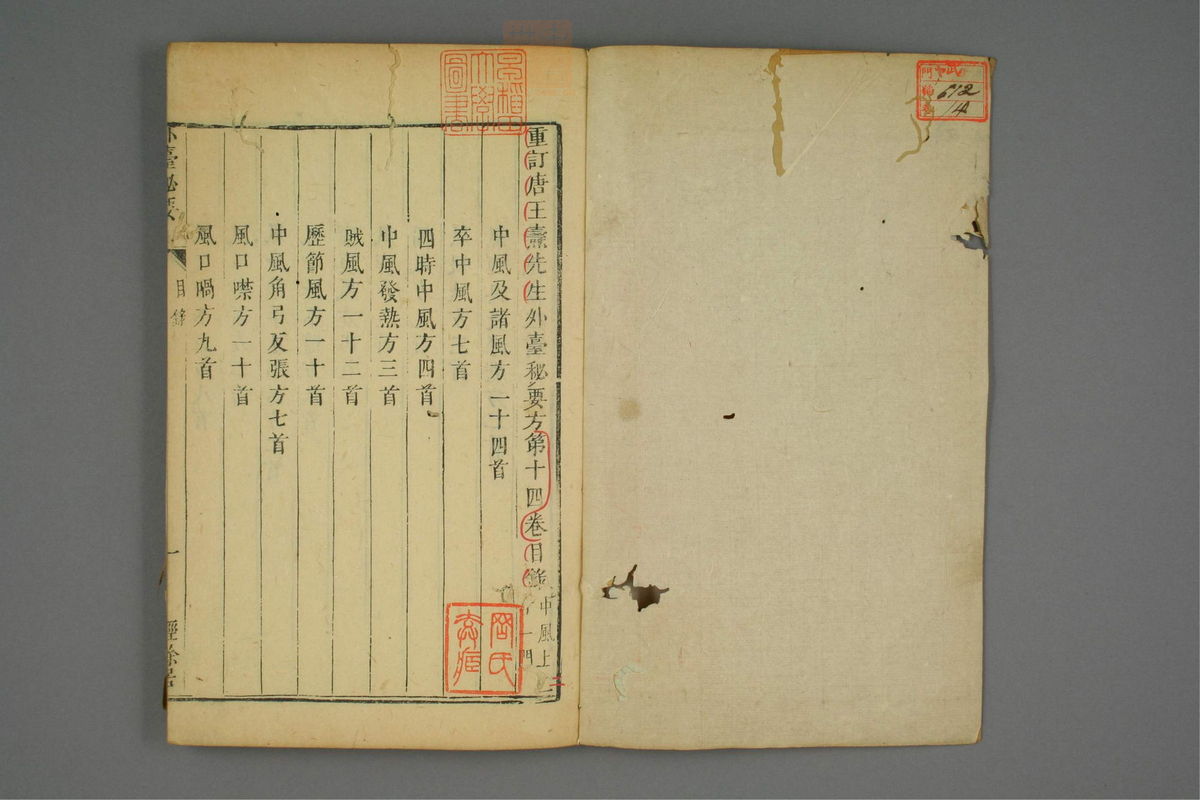 重訂唐王燾先生外臺秘要方第十四卷目錄
中風上
一門
中風及諸風方一十四首
卒中風方七首
四時中風方四首
中風發熱方三首
賊風方一十二首
歷節風方一十首
中風角弓反張方七首
風口噤方一十首
風口喎方九首
外臺秘要
目錄
一
經餘居
早稻田大學圖書
門
號 612
卷 14